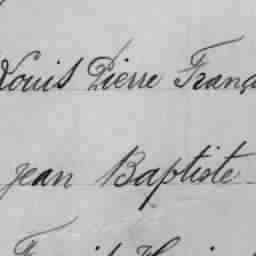 Louis Pierre Franç
Jean Baptiste